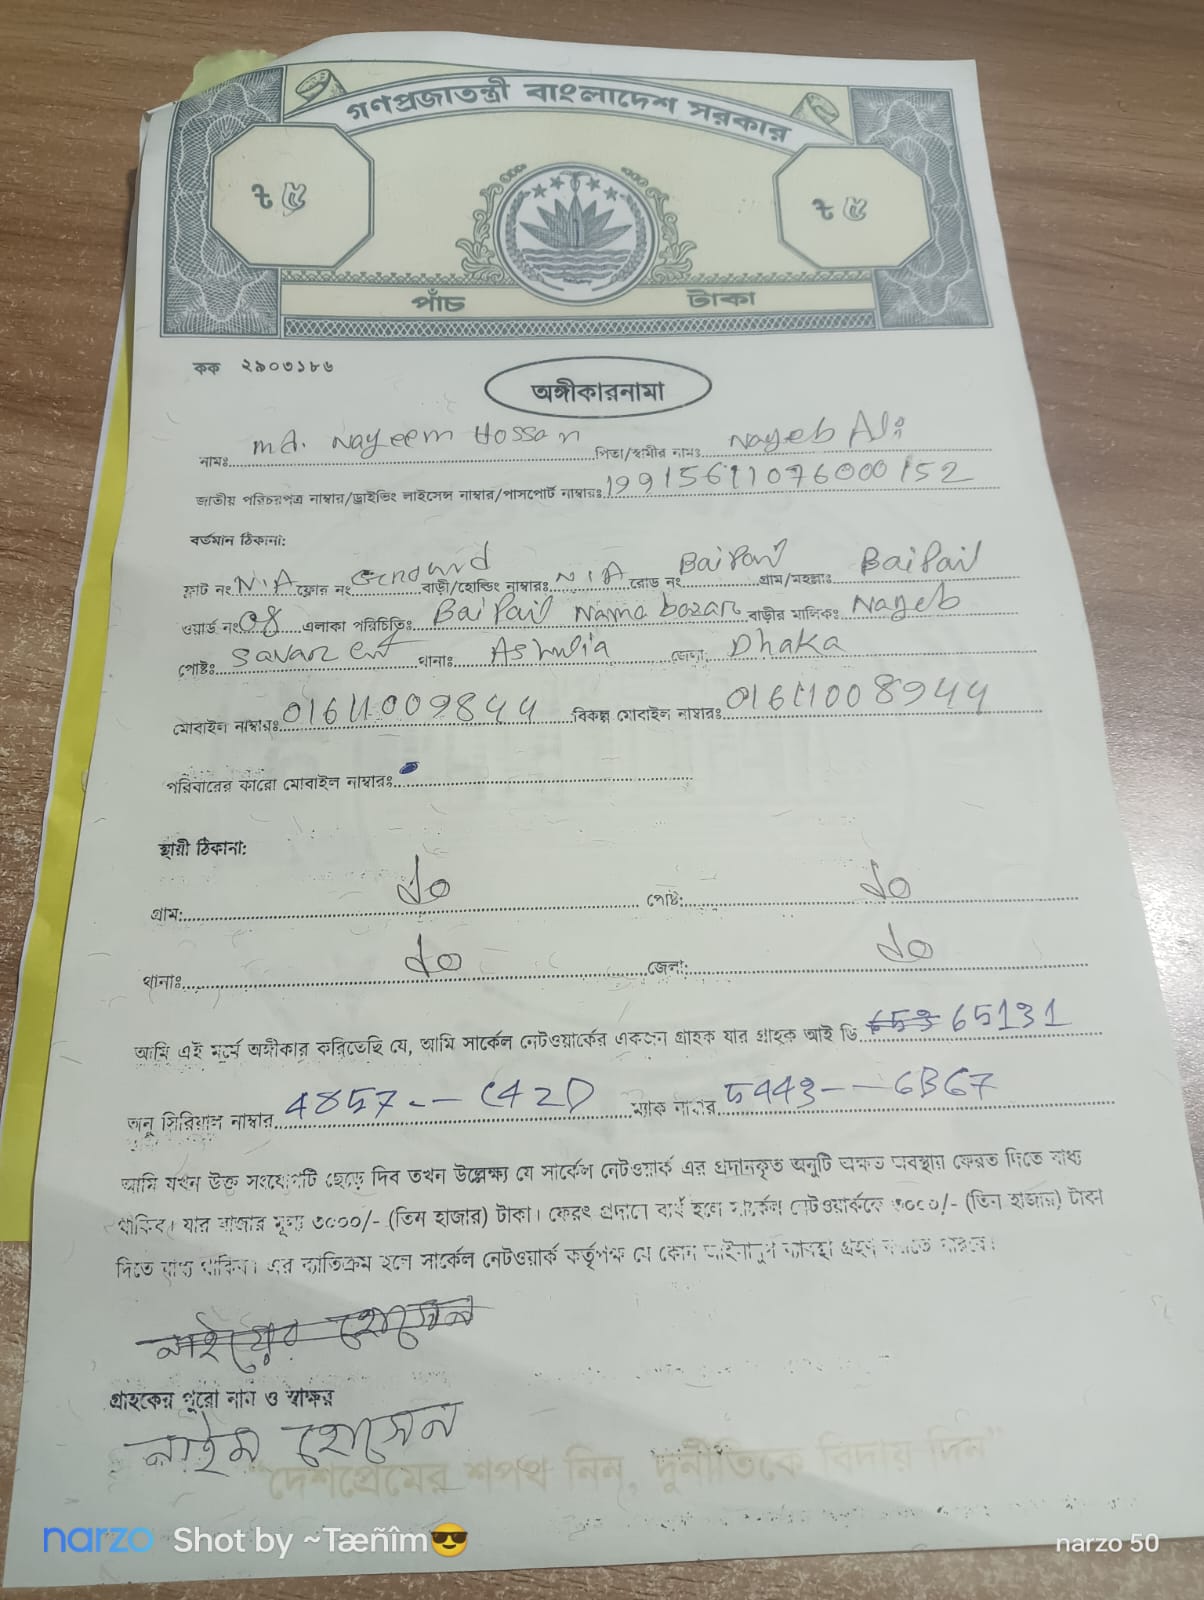 গণপ্রজাতন্ত্রী বাংলাদেশ সরকার
৳ ৫ ৳ ৫
পাঁচ টাকা
কক ২৯০৩১৮৬
অঙ্গীকারনামা
নামঃ Md. Nayeem Hossan পিতা/স্বামীর নামঃ Nayeb Ali
জাতীয় পরিচয়পত্র নাম্বার/ড্রাইভিং লাইসেন্স নাম্বার/পাসপোর্ট নাম্বারঃ
বর্তমান ঠিকানা:
ফ্লাট নং N/A ফ্লোর নং Ground বাড়ী/হোল্ডিং নাম্বারঃ N/A রোড নং Baipail গ্রাম/মহল্লাঃ Baipail
ওয়ার্ড নংঃ 08 এলাকা পরিচিতিঃ Baipail Nama bazar বাড়ীর মালিকঃ Nayeb
পোষ্টঃ Savar থানাঃ Ashulia জেলা: Dhaka
মোবাইল নাম্বারঃ বিকল্প মোবাইল নাম্বারঃ
পরিবারের কারো মোবাইল নাম্বারঃ
স্থায়ী ঠিকানা:
গ্রাম: do পোষ্ট: do
থানাঃ do জেলা: do
আমি এই মর্মে অঙ্গীকার করিতেছি যে, আমি সার্কেল নেটওয়ার্কের একজন গ্রাহক যার গ্রাহক আই ডি 65131
অনু সিরিয়াল নাম্বার 4857-- C42D ম্যাক নাম্বার 5443-- 6B67
আমি যখন উক্ত সংযোগটি ছেড়ে দিব তখন উল্লেক্ষ্য যে সার্কেল নেটওয়ার্ক এর প্রদানকৃত অনুটি অক্ষত অবস্থায় ফেরত দিতে বাধ্য
থাকিব। যার বাজার মূল্য ৩০০০/- (তিন হাজার) টাকা। ফেরৎ প্রদানে ব্যর্থ হলে সার্কেল নেটওয়ার্ককে ৩০০০/- (তিন হাজার) টাকা
দিতে বাধ্য থাকিব। এর ব্যতিক্রম হলে সার্কেল নেটওয়ার্ক কর্তৃপক্ষ যে কোন আইনানুগ ব্যবস্থা গ্রহণ করতে পারবে।
গ্রাহকের পুরো নাম ও স্বাক্ষর
নাইম হোসেন
"দেশপ্রেমের শপথ নিন, দুর্নীতিকে বিদায় দিন"
narzo Shot by ~Tæñîm😎 narzo 50